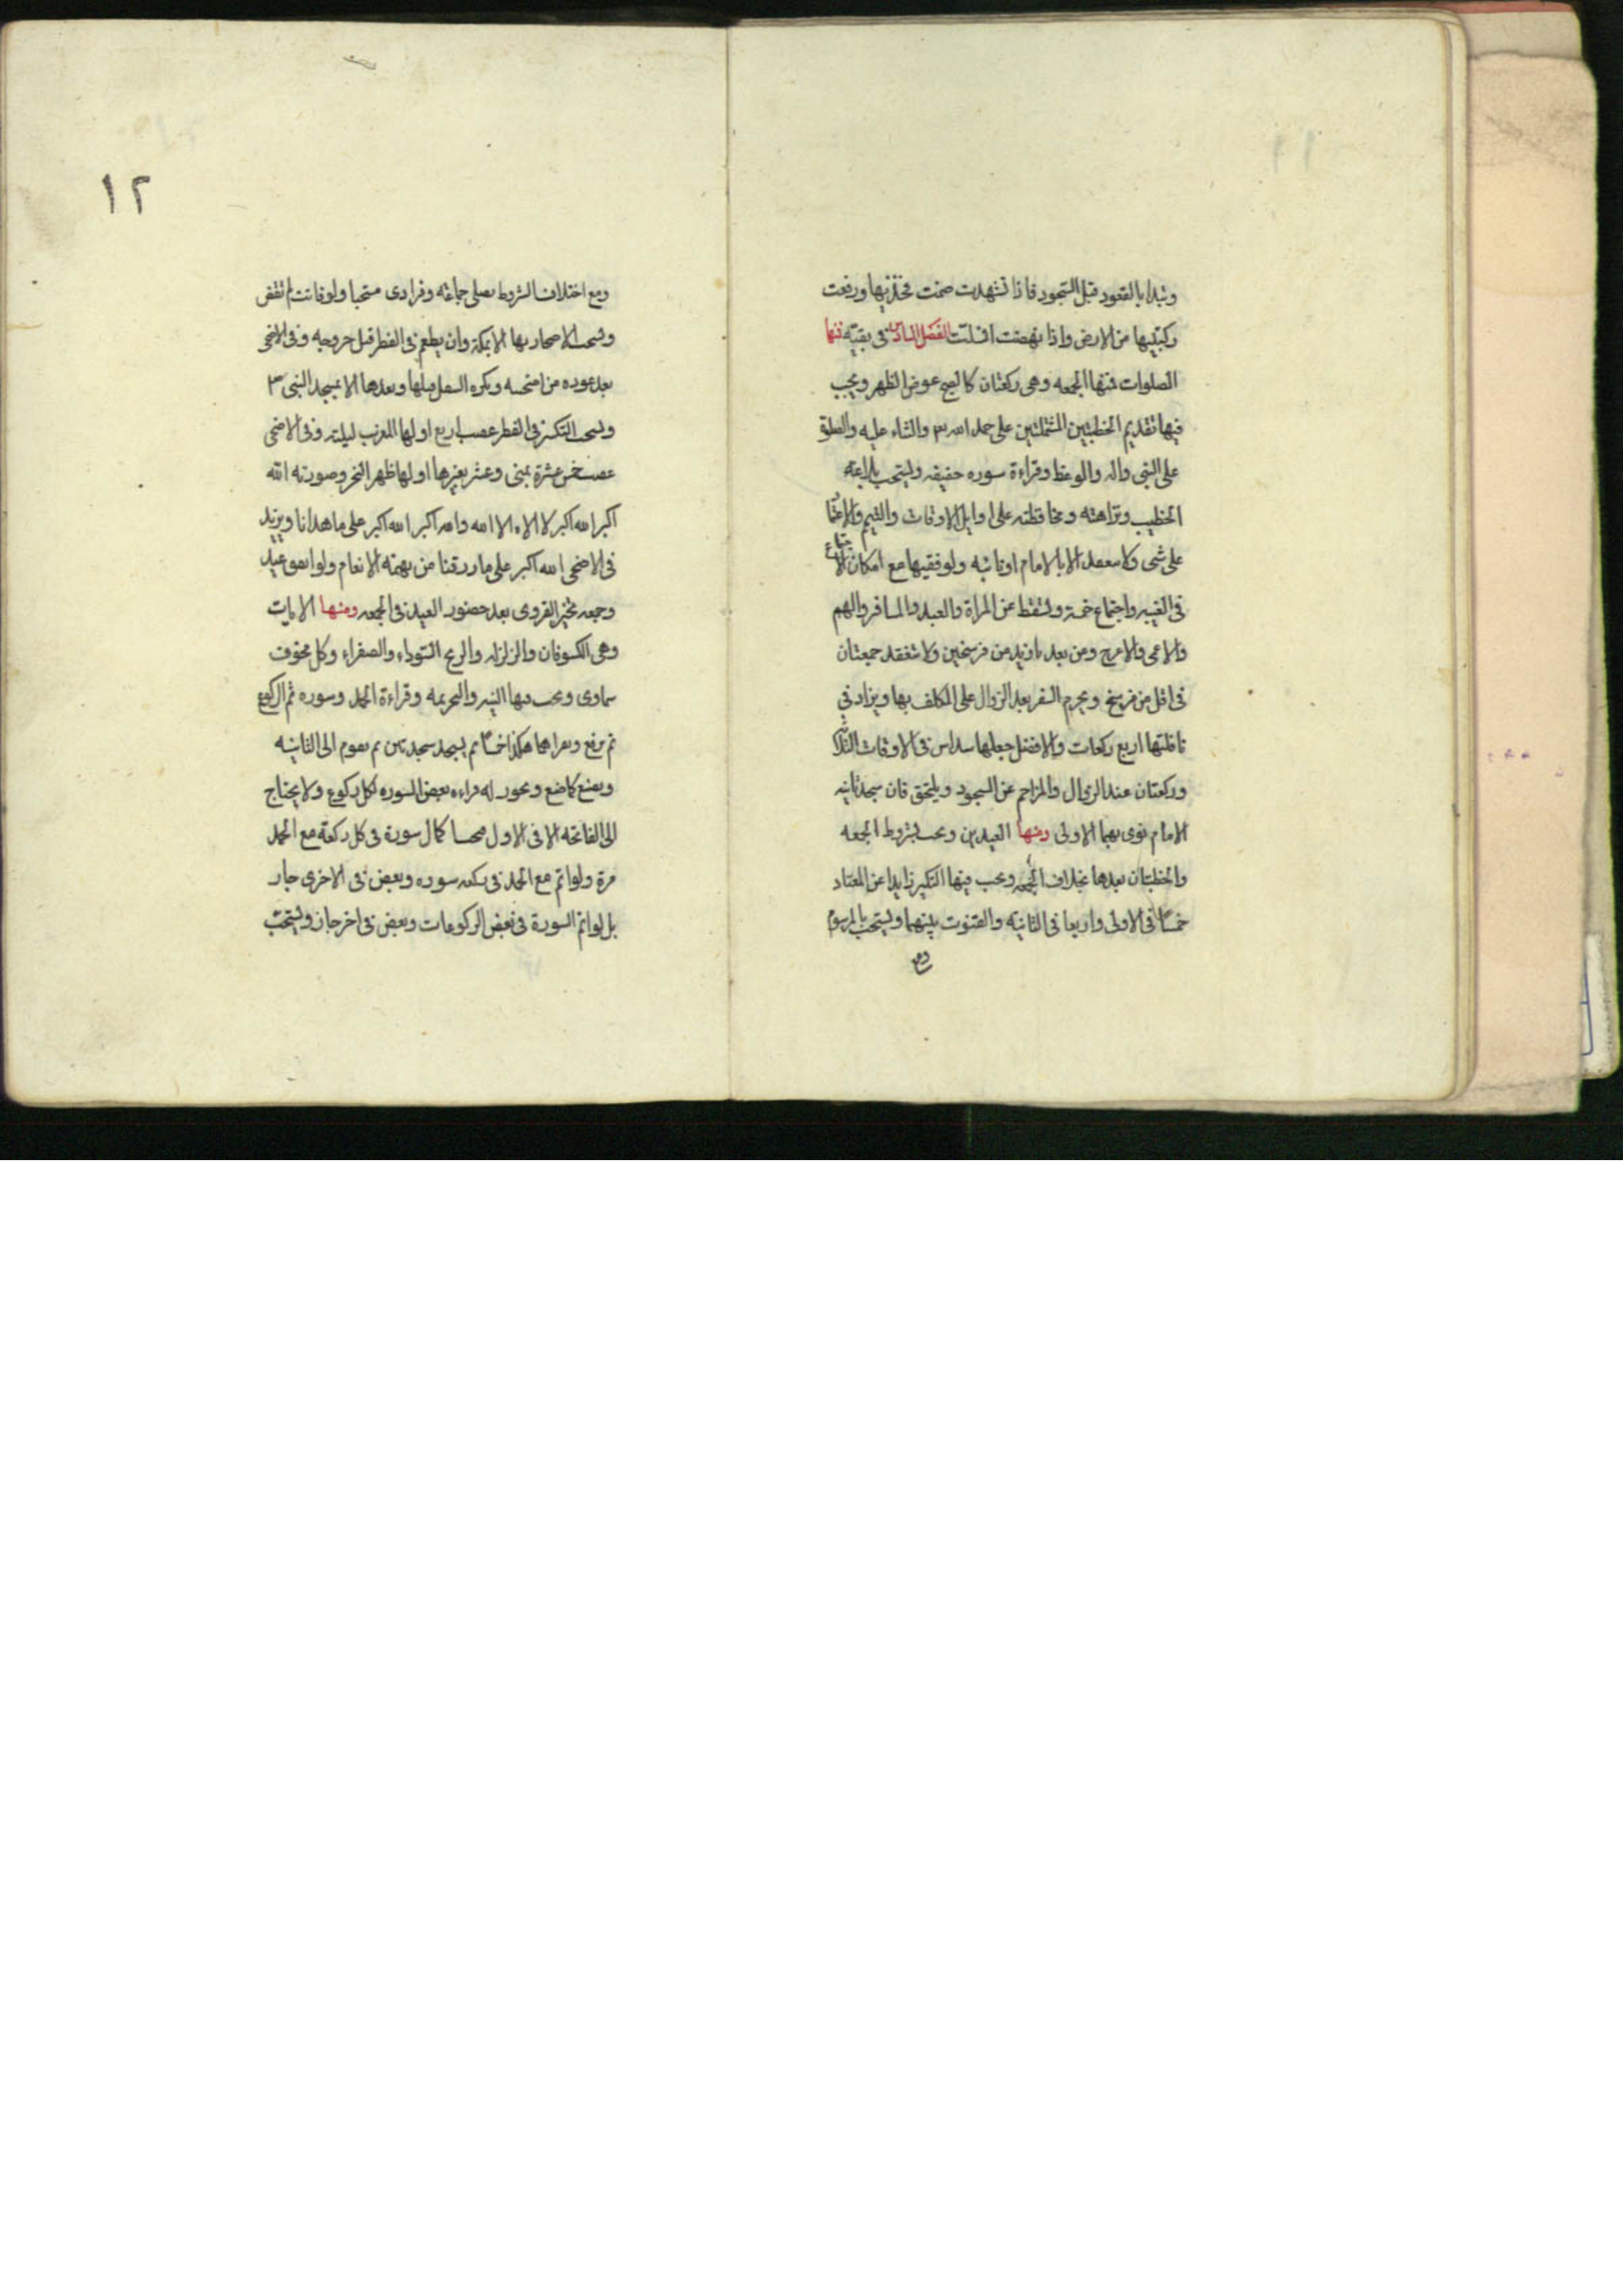 وتبدا بالقعود قبل السجود فاذا تشهدت ضمت فخذيها ورفعت
ركبتيها من الارض واذا نهضت انسلت الفصل السادس فى بقيّة
الصلوات فمنها الجمعه وهى ركعتان كالصبح عوض الظهر ويجب
فيها تقديم الخطبتين المشتملتين على حمد الله والثناء عليه والصلوة
على النبى واله والوعظ وقراءة سوره خفيفه ويستحب بلاغة
الخطيب ونزاهته ومحافظته على اوايل الاوقات والتعمم والاعتماد
على شى ولا سعقد الا بالامام او نائبه ولو فقيها مع امكان الاجتماع
فى الغيبه واجتماع خمسة وتسقط عن المراة والعبد والمسافر والهم
والاعمى والاعرج ومن بعد بازيد من فرسخين ولا تنعقد جمعتان
فى اقل من فرسخ ويحرم السفر بعد الزوال على المكلف بها ويزاد في
نافلتها اربع ركعات والافضل جعلها سداس فى الاوقات الثلاثه
وركعتان عند الزوال والمزاحم عن السجود ويلتحق فان سجد ثانيه
الامام نوى بهما الاولى ومنها العيدين ويجب بشروط الجمعه
والخطبتان بعدها بخلاف الجمعه ويجب فيها التكبير زايدا عن المعتاد
خمسًا فى الاولى واربعا فى الثانيه والقنوت بينهما ويستحب بالمرسوم
ومع
١٢
ومع اختلاف الشروط يصلى جماعة وفرادى مستحبا ولو فاتت لم تقض
ويستحب الاصحار بها الا بمكة وان يطعم فى الفطر قبل خروجه وفى الاضحى
بعد عوده من اضحيته ويكره التنفل قبلها وبعدها الا بمسجد النبى
ويستحب التكبير فى الفطر عقيب اربع اولها المغرب ليلته وفى الاضحى
عقيب خمس عشرة بمنى وعشر بغيرها اولها ظهر النحر وصورته الله
اكبر الله اكبر لا اله الا الله والله اكبر الله اكبر على ما هدانا ويزيد
فى الاضحى الله اكبر على ما رزقنا من بهيمة الانعام ولو اتفق عيد
وجمعه تخير القروى بعد حضور العيد فى الجمعه ومنها الايات
وهى الكسوفان والزلزله والريح السوداء والصفراء وكل مخوف
سماوى ويجب فيها النيه والتحريمه وقراءة الحمد وسوره ثم الركوع
ثم يرفع ويقراهما هكذا خمسًا ثم يسجد سجدتين ثم يقوم الى الثانيه
ويصنع كما صنع ويجوز له قراءه بعض السوره لكل ركوع ولا يحتاج
الى الفاتحه الا فى الاول اكمال سورة فى كل ركعة مع الحمد
مرة ولو اتم مع الحمد فى ركعه سوره وبعض فى الاخرى جاز
بل لو اتم السورة فى بعض الركوعات وبعض فى اخر جاز ويستحب